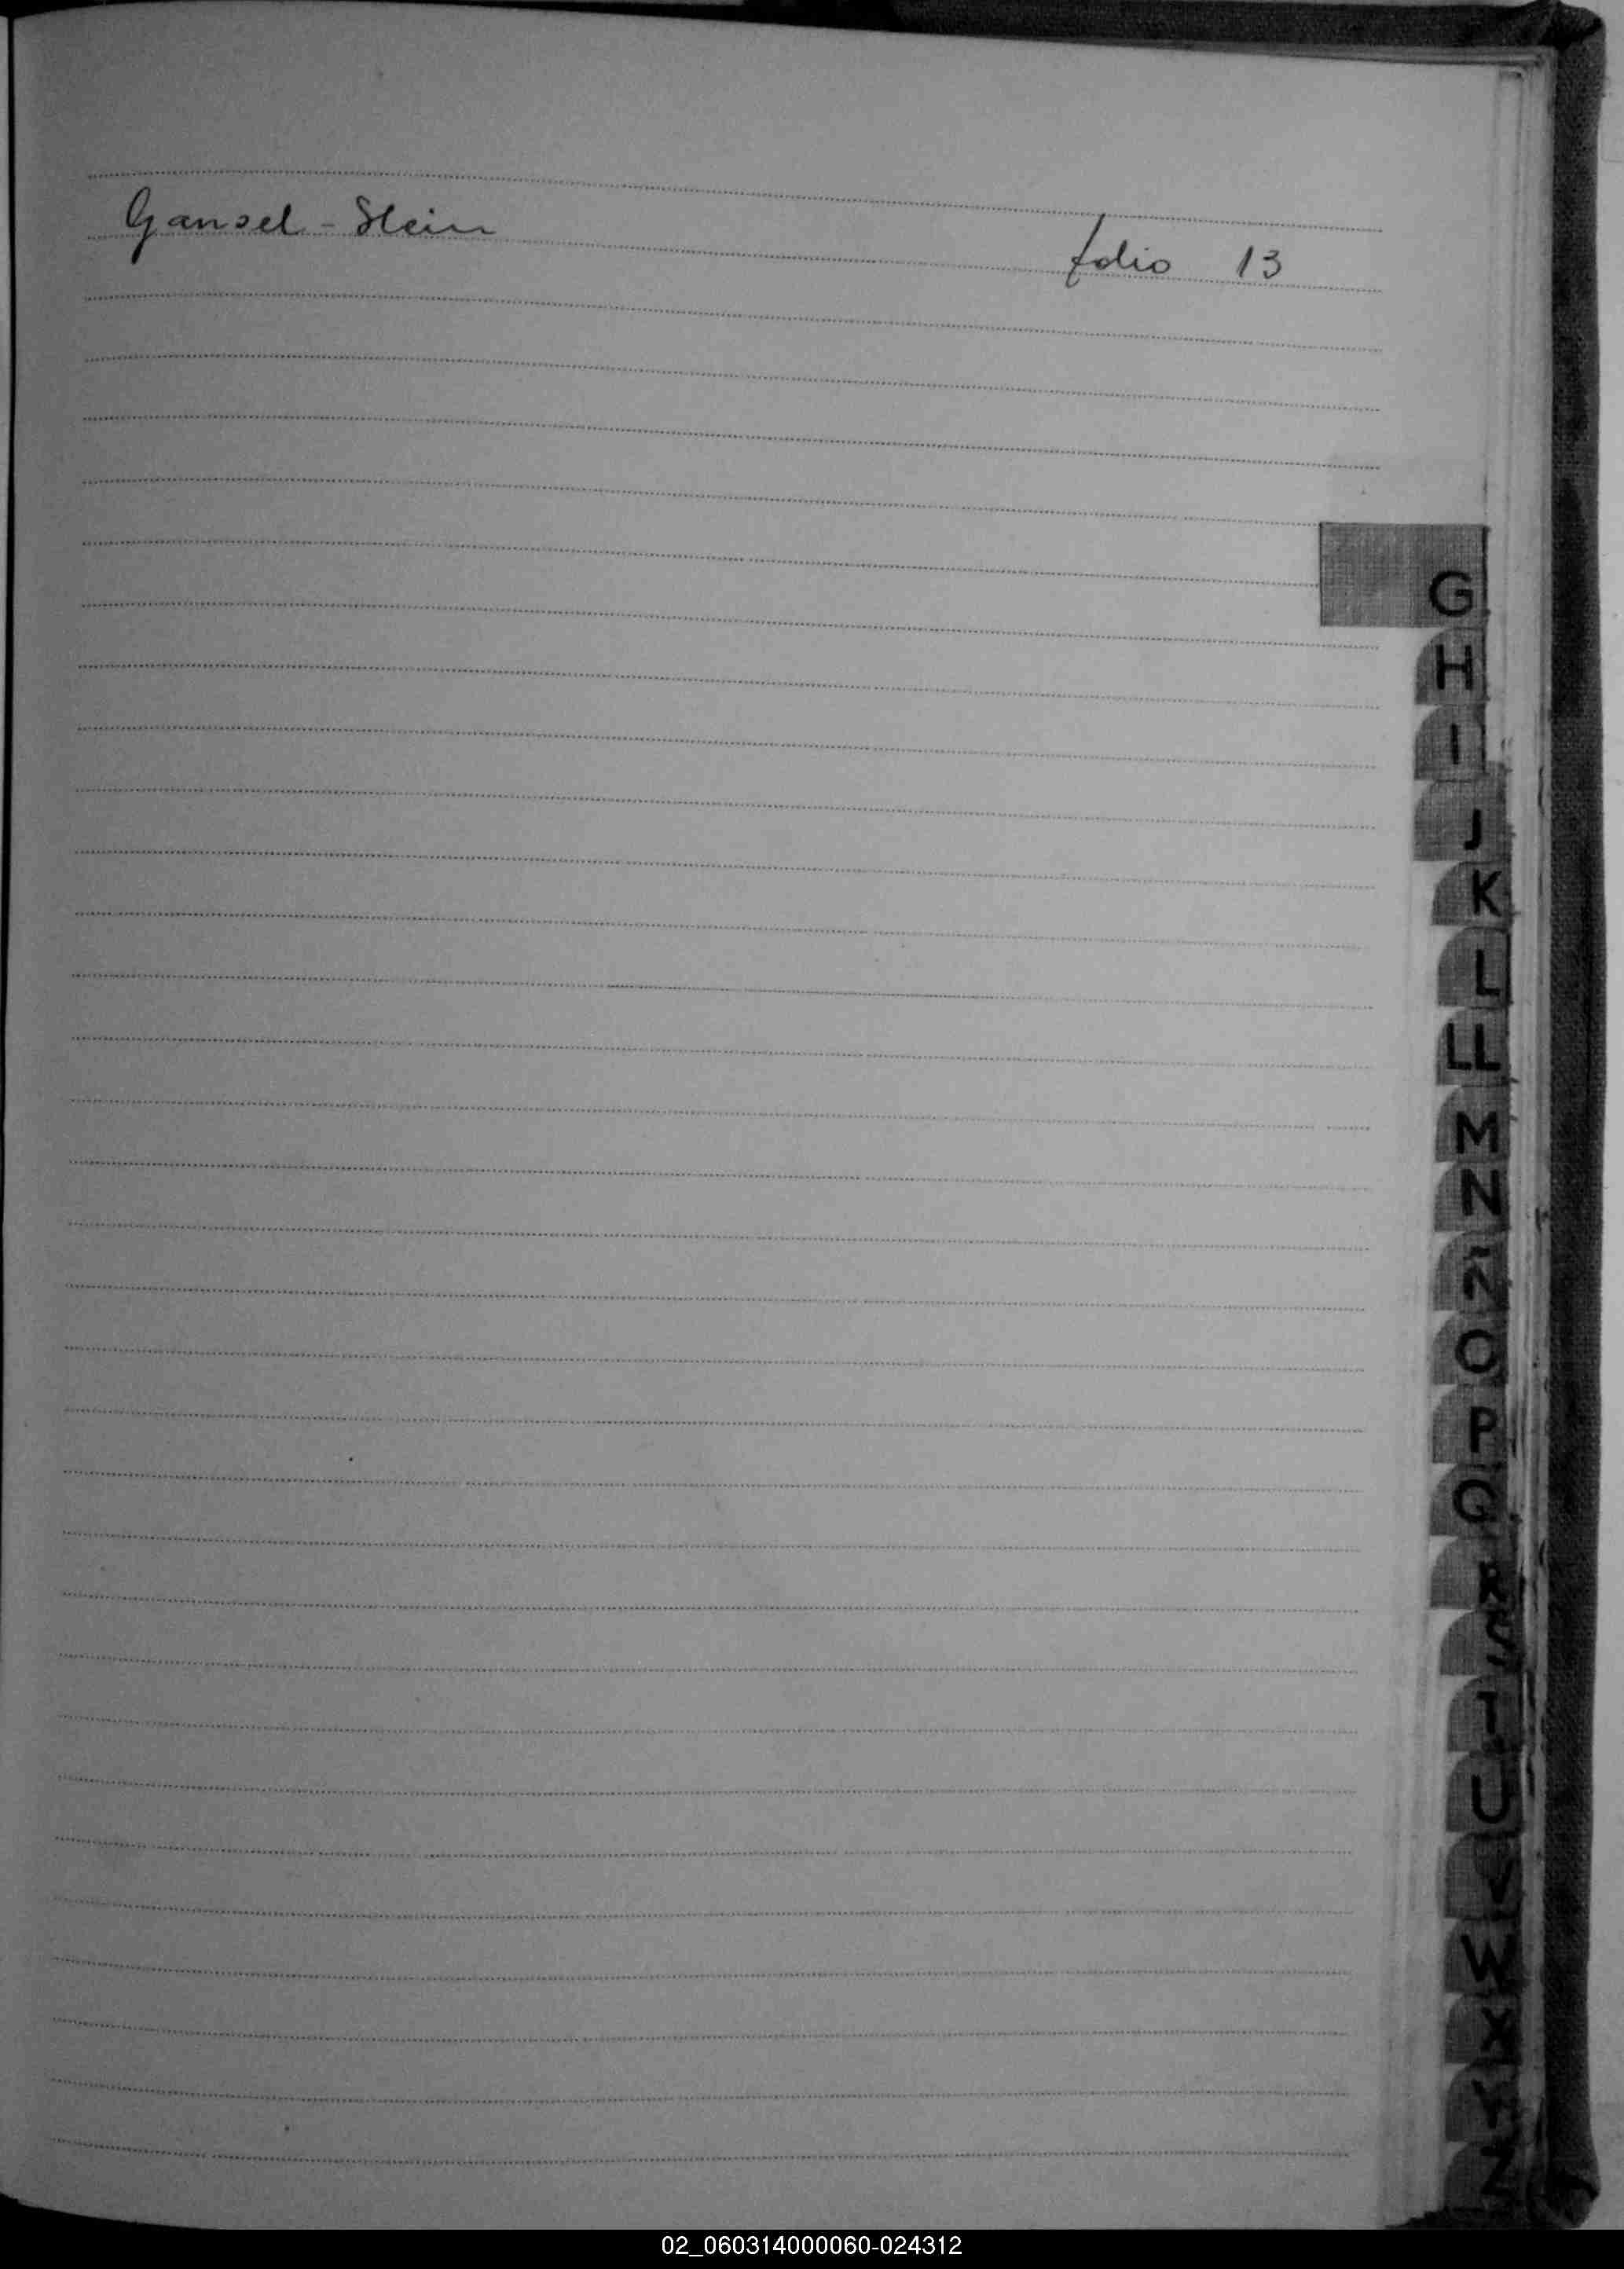 Gansel - Stein folio 13
G
H
I
J
K
L
LL
M
N
Ñ
O
P
Q
R
S
T
U
V
W
X
Y
Z
02_060314000060-024312